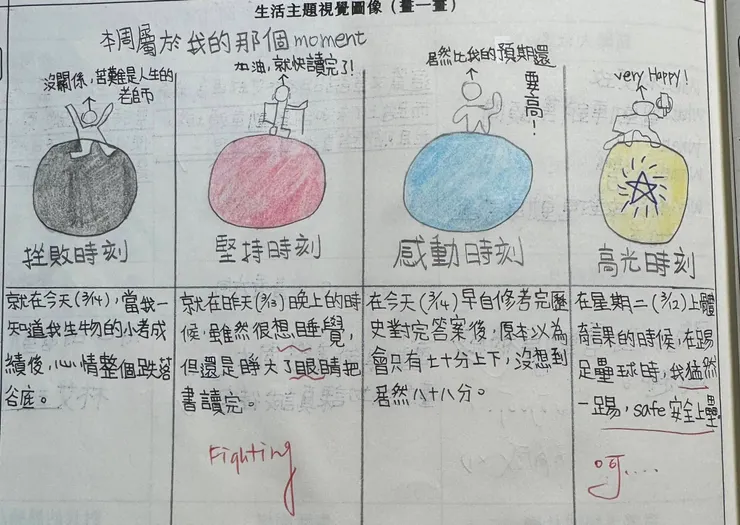 生活主題視覺圖像（畫一畫）
本周屬於我的那個moment
沒關係，苦難是人生的
老師
挫敗時刻
就在今天(3/14)，當我一
知道我生物的小考成
績後，心情整個跌落
谷底。
加油，就快讀完了！
堅持時刻
就在昨天(3/13)晚上的時
候，雖然很想睡覺，
但還是睜大了眼睛把
書讀完。
Fighting
居然比我的預期還
要高！
感動時刻
在今天(3/14)早自修考完歷
史對完答案後，原本以為
會只有七十分上下，沒想到
居然八十八分。
very Happy!
高光時刻
在星期二(3/12)上體
育課的時候，在踢
足壘球時，我猛然
一踢，safe安全上壘。
呵....